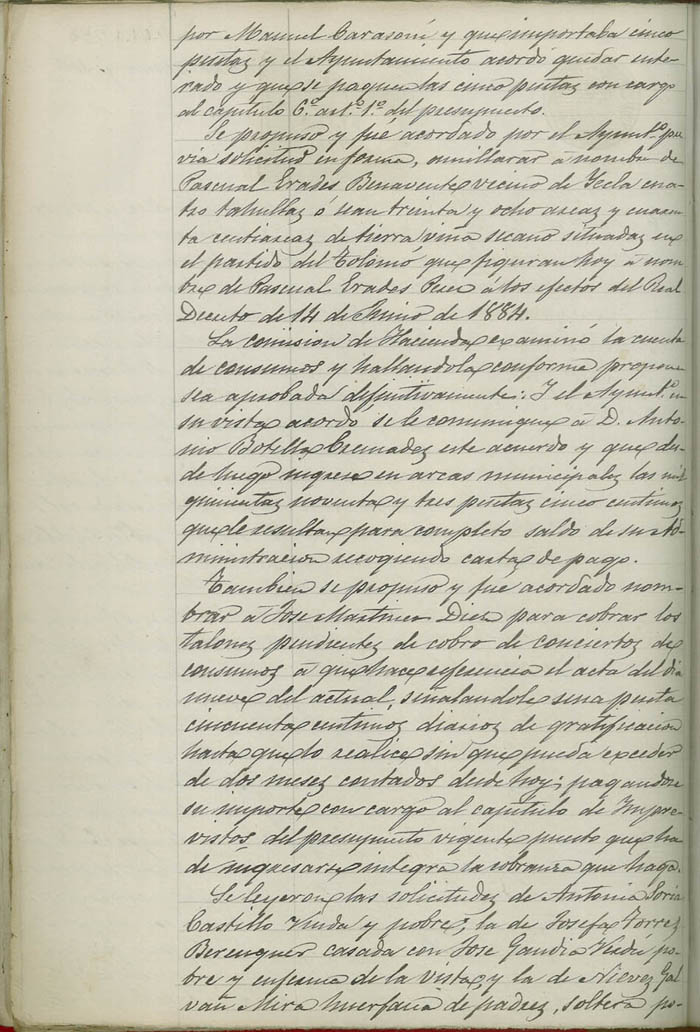 por Manuel Carasoní y que importaba cinco
pesetas y el Ayuntamiento acordó quedar ente-
rado y que se paguen las cinco pesetas con cargo
al capitulo 6.º art.º 1.º del presupuesto.
Se propuso y fué acordado por el Ayunt.º pre
via solicitud en forma, amillarar á nombre de
Pascual Erades Benavente vecino de Yecla cua-
tro tahullas ó sean treinta y ocho areas y cuaren
ta centiareas de tierra viña secano situadas en
el partido del Tolomo que figuran hoy á nom-
bre de Pascual Erades Perez á los efectos del Real
Decreto de 14 de Junio de 1884.
La comision de Hacienda examinó la cuenta
de consumos y hallandola conforme propone
sea aprobada definitivamente: Y el Ayunt.º en
su vista acordó se le comunique á D. Anto-
nio Botella Cremades este acuerdo y que des-
de luego ingrese en arcas municipales las mil
quinientas noventa y tres pesetas cinco centimos
que le resultan para completo saldo de su Ad-
ministracion recogiendo carta de pago.
Tambien se propuso y fué acordado nom-
brar á Jose Martinez Diez para cobrar los
talones pendientes de cobro de conciertos de
consumos á que hace referencia el acta del dia
nueve del actual, señalandole una peseta
cincuenta centimos diarios de gratificacion
hasta que lo realice sin que pueda exceder
de dos meses contados desde hoy; pagandose
su importe con cargo al capitulo de Impre-
vistos del presupuesto vigente puesto que ha
de ingresarse integra la cobranza que haga.
Se leyeron las solicitudes de Antonia Soria
Castillo viuda y pobre; la de Josefa Torres
Berenguer casada con Jose Gandia Verdu po-
bre y enferma de la vista, y la de Nieves Gal
vañ Mira huerfana de padres, soltera po-